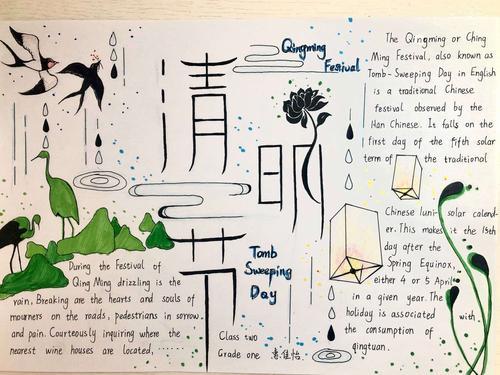 清明节
Qingming
Festival
The Qingming or Ching
Ming Festival, also known as
Tomb-Sweeping Day in English
is a traditional Chinese
festival observed by the
Han Chinese. It falls on the
first day of the fifth solar
term of the traditional
Chinese luni-solar calend-
er. This makes it the 15th
day after the
Spring Equinox,
either 4 or 5 April
in a given year. The
holiday is associated with
the consumption of
qingtuan.
Tomb
Sweeping
Day
During the Festival of
Qing Ming drizzling is the
rain, Breaking are the hearts and souls of
mourners on the roads, pedestrians in sorrow
and pain. Courteously inquiring where the
nearest wine houses are located, ......
Class two
Grade one